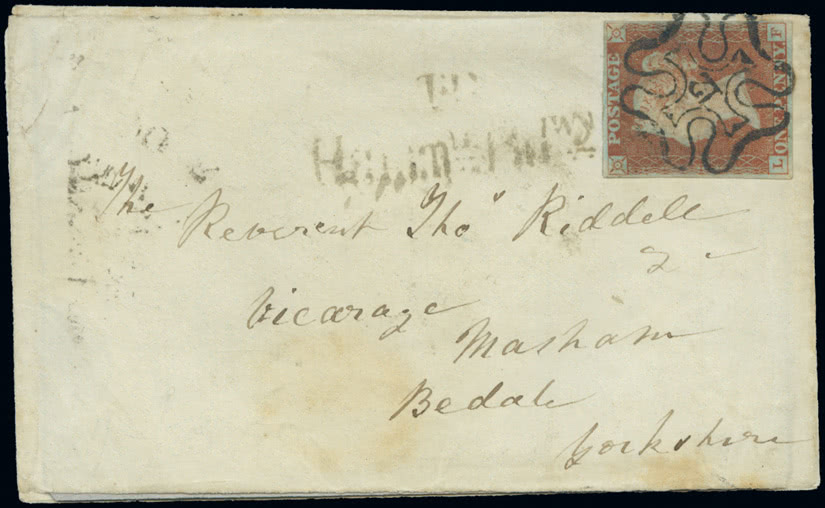 POSTAGE
ONE PENNY
L F
The
Reverent Tho^s Riddell
Vicarage
Masham
Bedale
Yorkshire